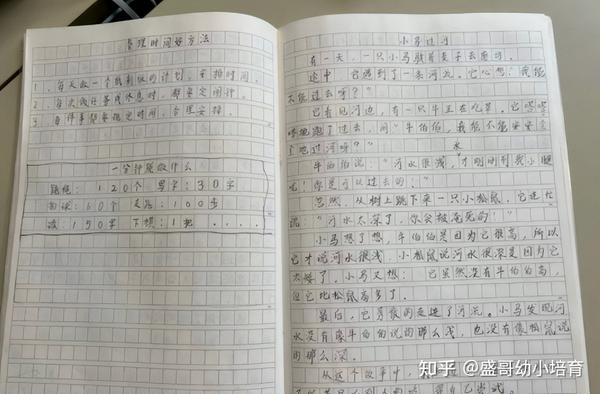 管理时间好方法
1、每天做一个的计划,安排时间。
2、每次做任务或休息时,都要定闹钟。
3、每件事都要规定时间,合理安排。
一分钟能做什么
跳绳:120个 写字:30字
口算:60个 走路:100步
读:150字 下棋:1把 ....
小马过河
有一天,一只小马驮着麦子去磨坊。
途中,它遇到了一条河流。它心想:"我能
不能过去呀?"
它看见河边,有一只牛正在吃草。它嗒嗒
嗒地跑了过去,问"牛伯伯,我能不能安安
了地过河呀?"
水
牛伯伯说:"河水很浅,才刚刚到我小腿
呢!你是可以过去的。"
忽然,从树上跳下来一只小松鼠,它连忙
说"河水太深了,你会被淹死的!"
小马想了想,牛伯伯是因为它很高,所以
它才说河水很浅。小松鼠说河水很深是因为它
太矮了。小马又想:它虽然没有牛伯伯高,
但它比松鼠高多了。
最后,它勇敢的走进了河流。小马发现河
水没有像牛伯伯说的那么浅,也没有像松鼠说
的那么深。
从这个故事中,我
知乎 @盛哥幼小培育